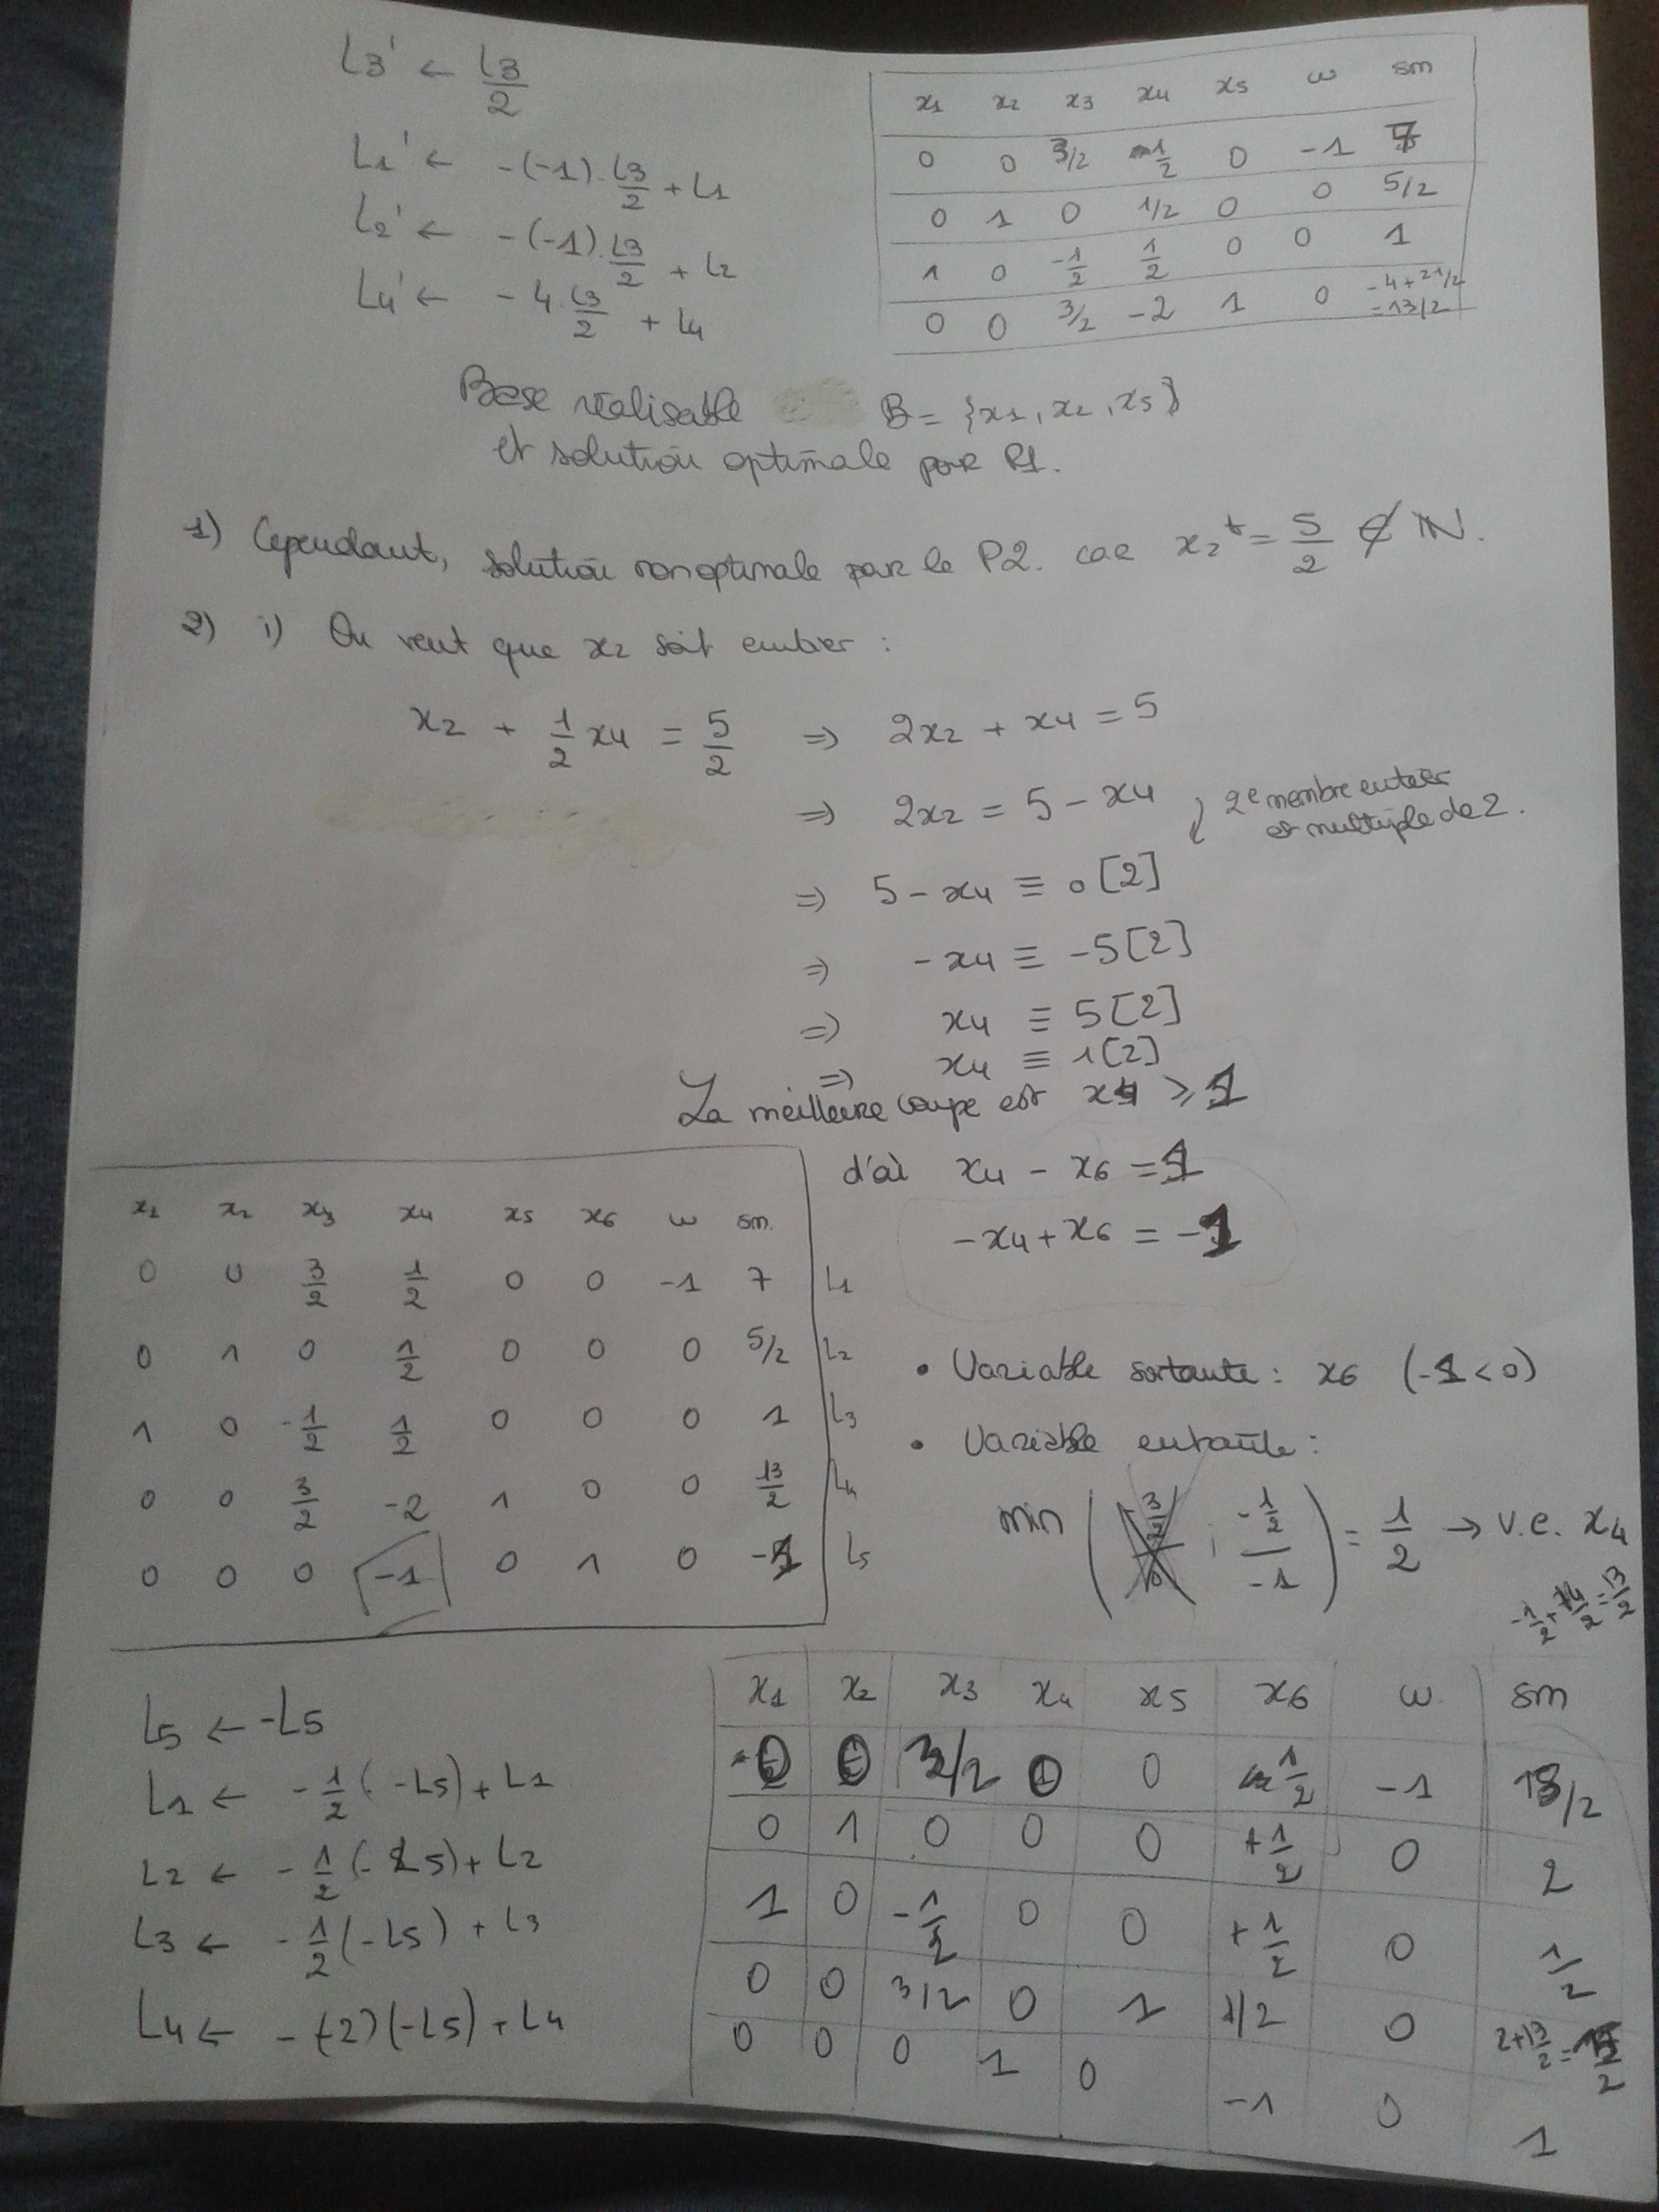 L3' ← L3/2
L1' ← -(-1).L3/2 + L1
L2' ← -(-1).L3/2 + L2
L4' ← -4.L3/2 + L4
x1 x2 x3 x4 x5 w sm
0 0 3/2 1/2 0 -1 7
0 1 0 1/2 0 0 5/2
1 0 -1/2 1/2 0 0 1
0 0 3/2 -2 1 0 -4+21/2 =13/2
Base réalisable B = {x1, x2, x5}
et solution optimale pour P1.
1) Cependant, solution non optimale pour le P2. car x2* = 5/2 ∉ IN.
2) i) On veut que x2 soit entier :
x2 + 1/2 x4 = 5/2 ⇒ 2x2 + x4 = 5
⇒ 2x2 = 5 - x4 2e membre entier
et multiple de 2.
⇒ 5 - x4 ≡ 0 [2]
⇒ -x4 ≡ -5 [2]
⇒ x4 ≡ 5 [2]
⇒ x4 ≡ 1 [2]
La meilleure coupe est x4 ≥ 1
d'où x4 - x6 = 1
-x4 + x6 = -1
x1 x2 x3 x4 x5 x6 w sm.
0 0 3/2 1/2 0 0 -1 7 L1
0 1 0 1/2 0 0 0 5/2 L2
1 0 -1/2 1/2 0 0 0 1 L3
0 0 3/2 -2 1 0 0 13/2 L4
0 0 0 -1 0 1 0 -1 L5
• Variable sortante : x6 (-1 < 0)
• Variable entrante :
min ( ; -1/2 / -1 ) = 1/2 → v.e. x4
-1/2 + 14/2 = 13/2
L5 ← -L5
L1 ← -1/2 (-L5) + L1
L2 ← -1/2 (-L5) + L2
L3 ← -1/2 (-L5) + L3
L4 ← -(-2)(-L5) + L4
x1 x2 x3 x4 x5 x6 w sm
0 0 3/2 0 0 1/2 -1 13/2
0 1 0 0 0 +1/2 0 2
1 0 -1/2 0 0 +1/2 0 1/2
0 0 3/2 0 1 1/2 0 2+13/2 =
0 0 0 1 0 -1 0 1